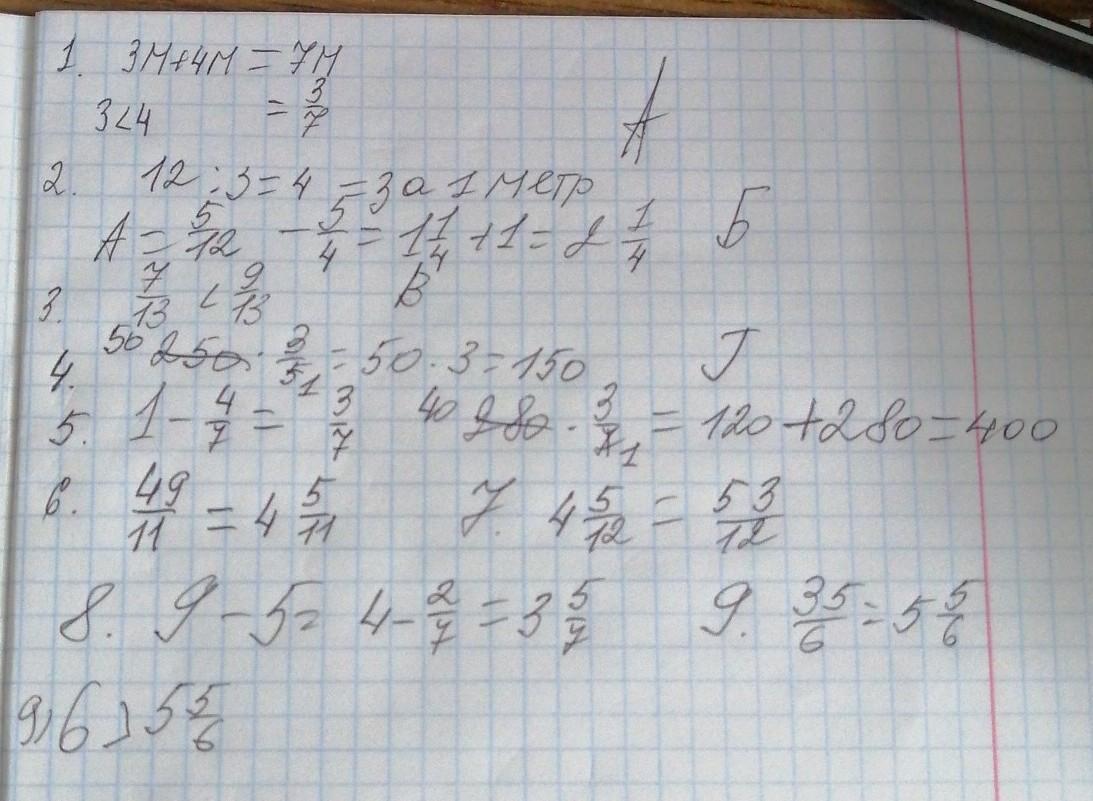 1. 3м+4м = 7м
3<4 = 3/7 А
2. 12 : 3 = 4 = За 1 метр
А = 5/12 - 5/4 = 1 1/4 + 1 = 2 1/4 Б
3. 7/13 < 9/13 В
4. 50 250 · 3/5 1 = 50 · 3 = 150 Г
5. 1 - 4/7 = 3/7 40 280 · 3/7 1 = 120 + 280 = 400
6. 49/11 = 4 5/11 7. 4 5/12 = 53/12
8. 9 - 5 = 4 - 2/7 = 3 5/7 9. 35/6 = 5 5/6
9) 6 > 5 5/6